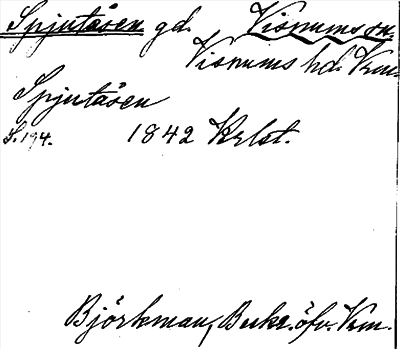 Spjutåsen gd. Visnums sn.
Visnums hd. Vrm.
Spjutåsen
S. 194. 1842 Krlst.
Björkman, Beskr. öfv. Vrm.